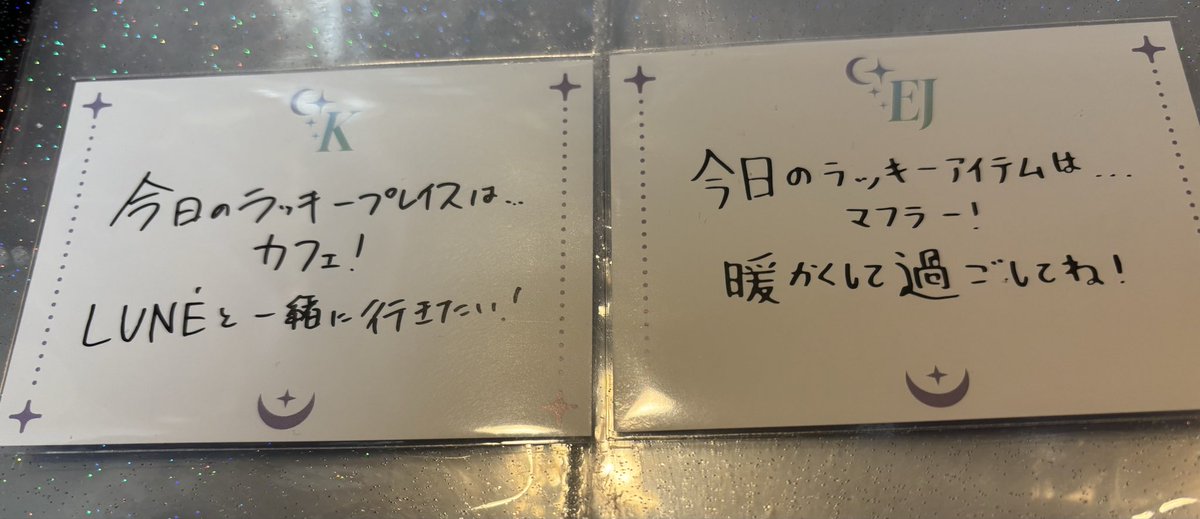 K
今日のラッキープレイスは...
カフェ!
LUNÉと一緒に行きたい!
EJ
今日のラッキーアイテムは...
マフラー!
暖かくして過ごしてね!